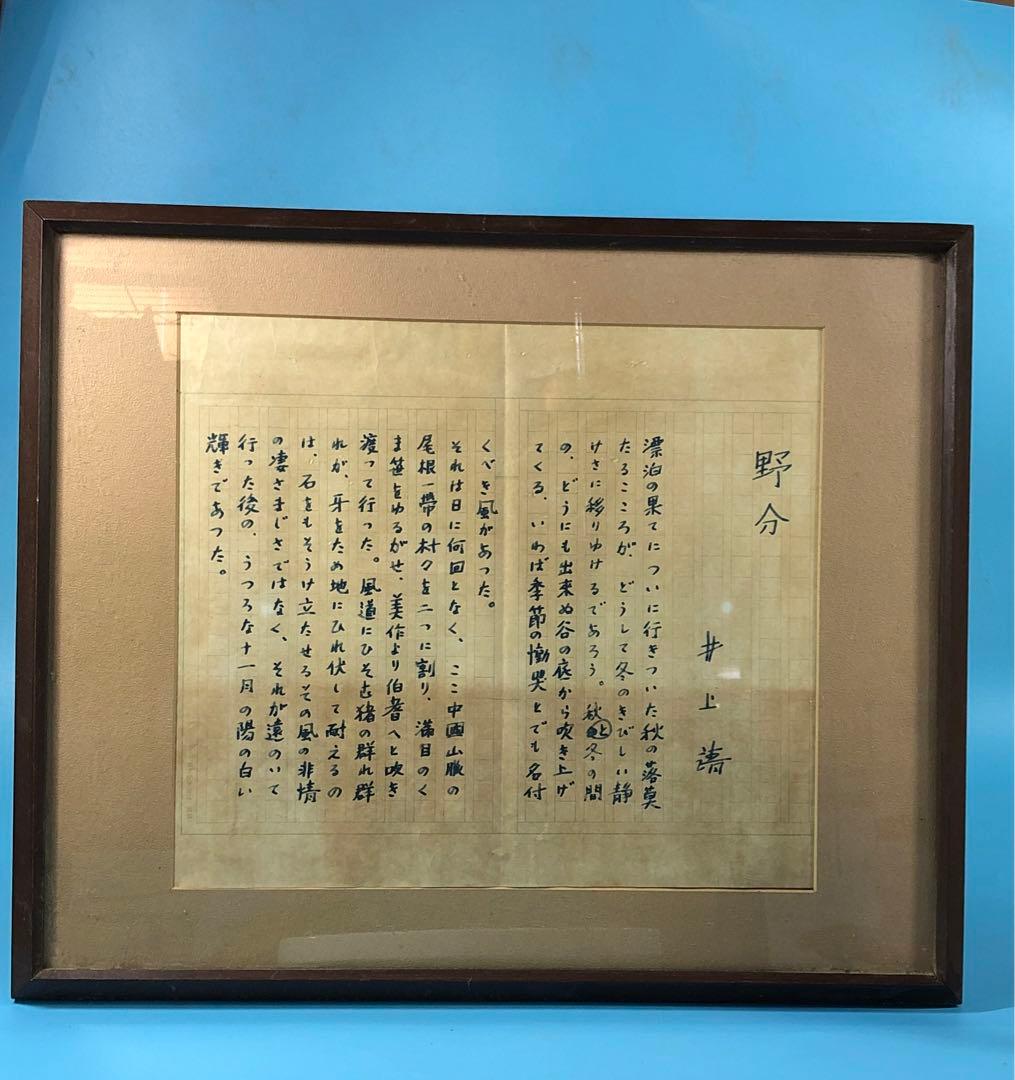 野分
井上靖
漂泊の果てについに行きついた秋の落莫
たるこころが、どうして冬のきびしい静
けさに移りゆけるであろう。秋と冬の間
の、どうにも出来ぬ谷の底から吹き上げ
てくる、いわば季節の慟哭とでも名付
くべき風があつた。
それは日に何回となく、ここ中國山脈の
尾根一帯の村々を二つに割り、満目のく
ま笹をゆるがせ、美作より伯耆へと吹き
渡って行った。風道にひそむ猪の群れ群
れが、牙をため地にひれ伏して耐えるの
は、石をもそうけ立たせるその風の非情
の凄さまじさではなく、それが遠のいて
行った後の、うつろな十一月の陽の白い
輝きであつた。